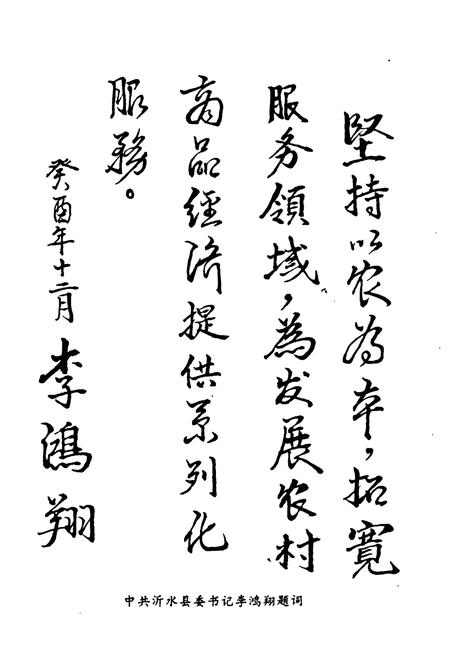 堅持以农为本，拓寬
服务領域，為发展农村
商品経济提供系列化
服務。
癸酉年十二月
李鴻翔
中共沂水县委书记李鸿翔题词